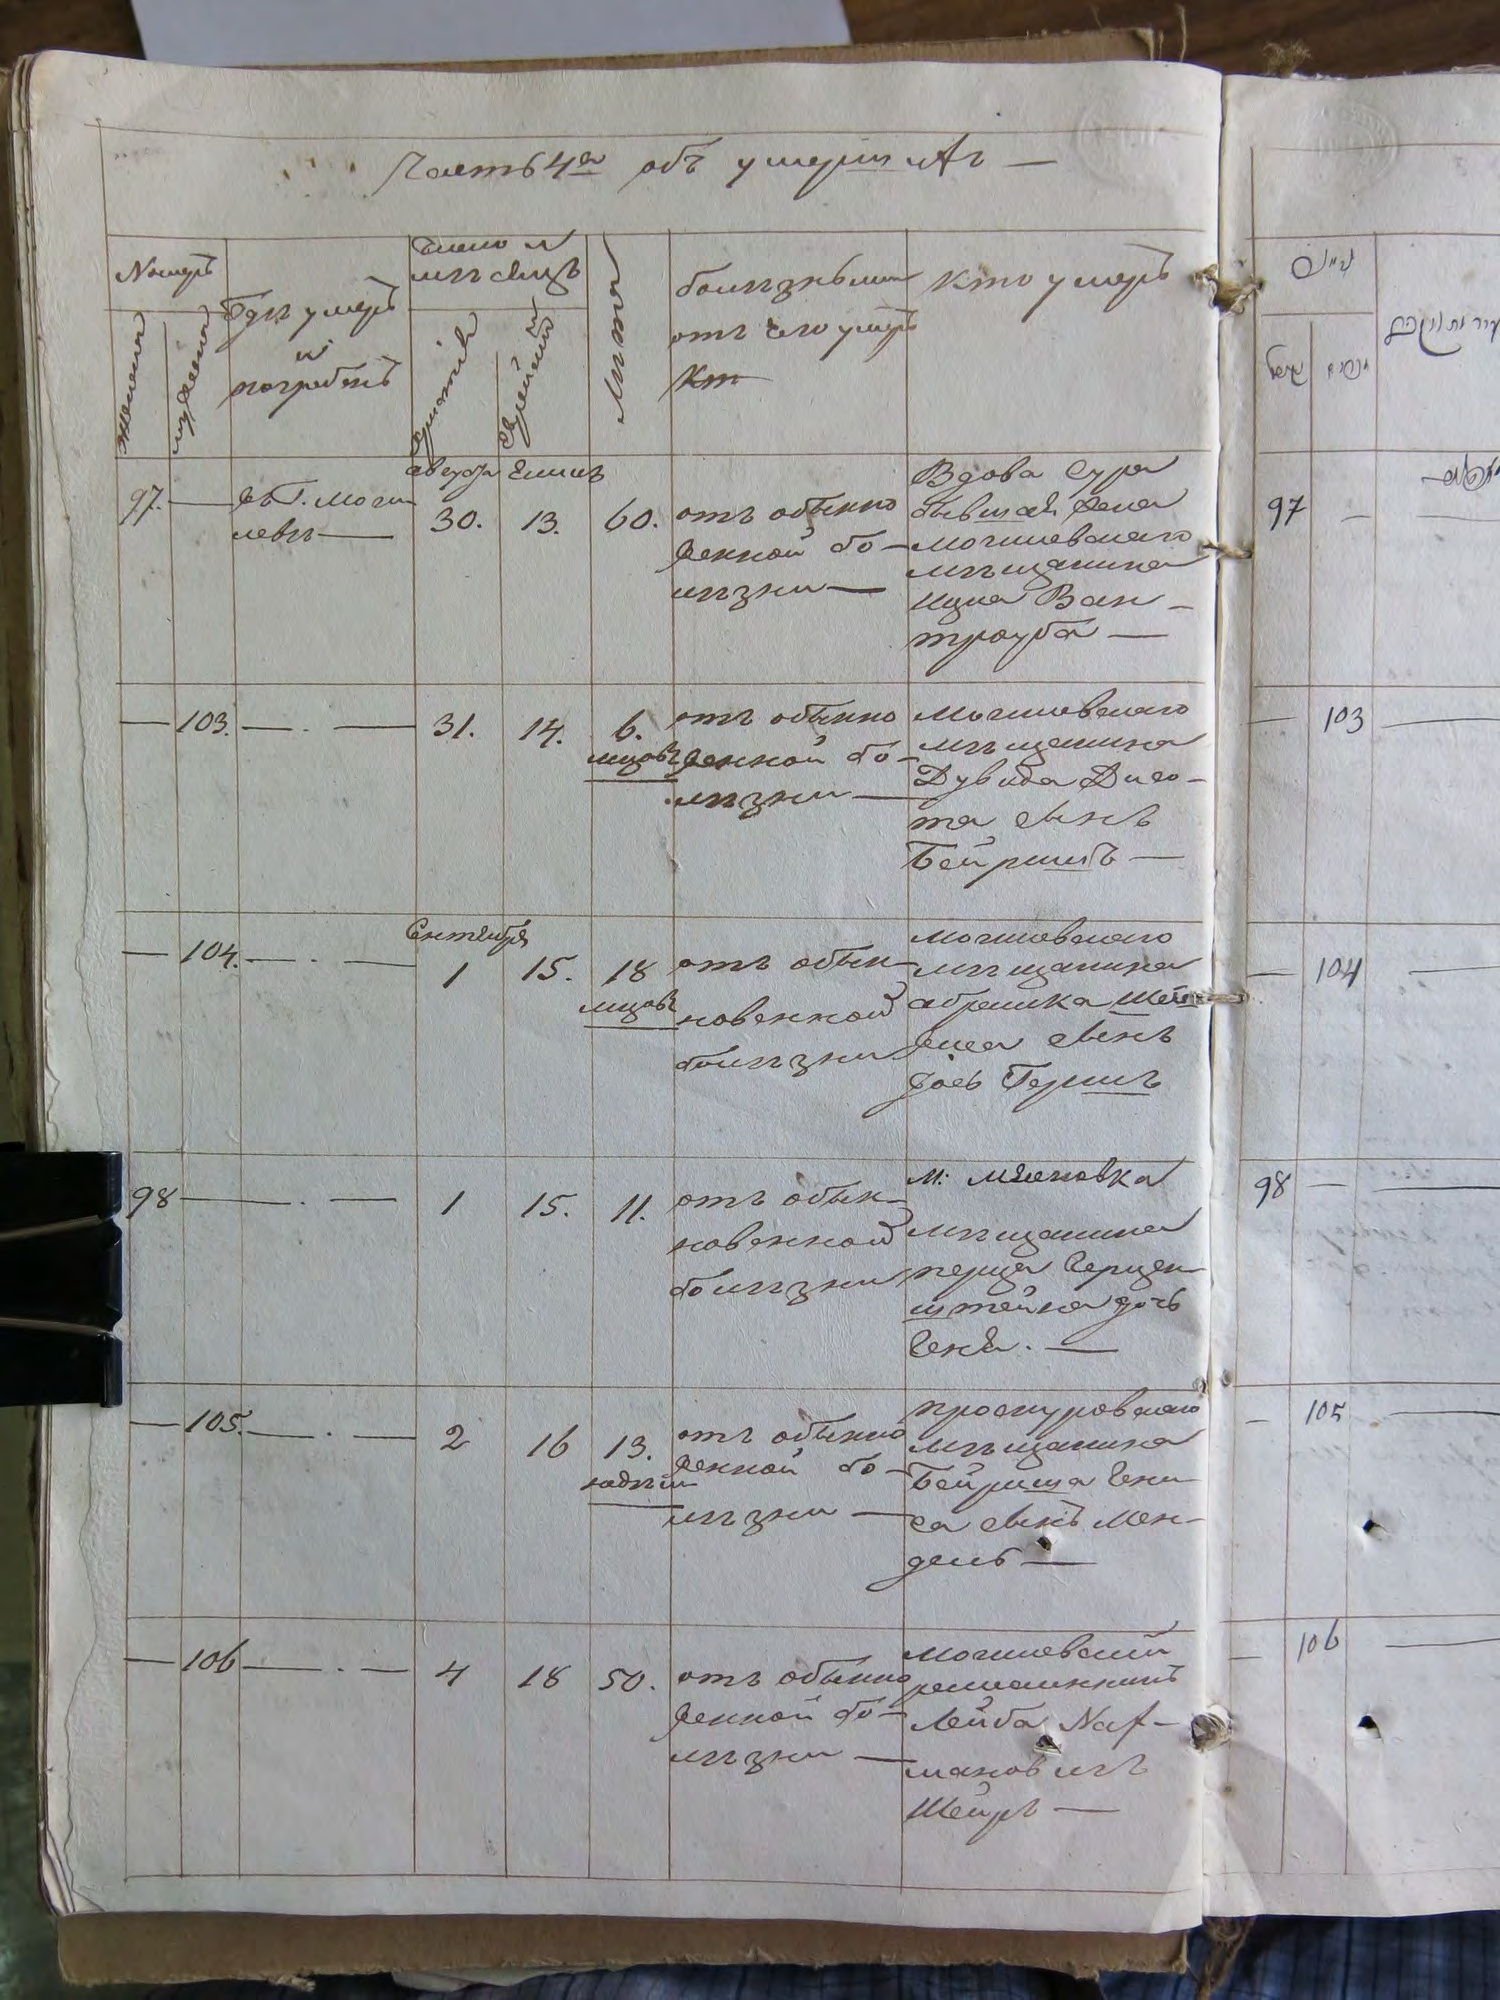 Часть 4я объ умершихъ —
Номеръ
женска
мужеска
Гдѣ умеръ
и
погребенъ
Число и
мѣсяцъ
Христiанс
Еврейскiй
Лѣта
болѣзнь или
отъ чего умеръ
Кто умеръ
97. — въ г. Моги
левѣ —
августа
30.
Елиль
13.
60.
отъ обыкно
венной бо-
лѣзни —
Вдова Сура
бывшая жена
могилевскаго
мѣщанина
Ицка Ван-
троуба —
— 103. — . —
31.
14.
6.
мѣсяцовъ
отъ обыкно
венной бо-
лѣзни —
Могилевскаго
мѣщанина
Дувида
сынъ
Бейришъ —
— 104. — . —
Сентября
1
15.
18
мѣсяцовъ
отъ обык-
новенной
болѣзни
могилевскаго
мѣщанина
абрамка
сынъ
Гершъ
98 — . —
1
15.
11.
отъ обык-
новенной
болѣзни
м: Мясковка
мѣщанина
перца Герцен
штейна дочь
Геня. —
— 105. — . —
2
16
13.
недѣль
отъ обыкно
венной бо-
лѣзни —
проскуровскаго
мѣщанина
Бейриша
сынъ Мен-
дель —
— 106 — . —
4
18
50.
отъ обыкно
венной бо-
лѣзни —
Могилевскiй
ремесленникъ
Лейба Наф-
тановичъ
Шейръ —
97 —
— 103 —
— 104 —
98 — —
— 105 —
— 106 —